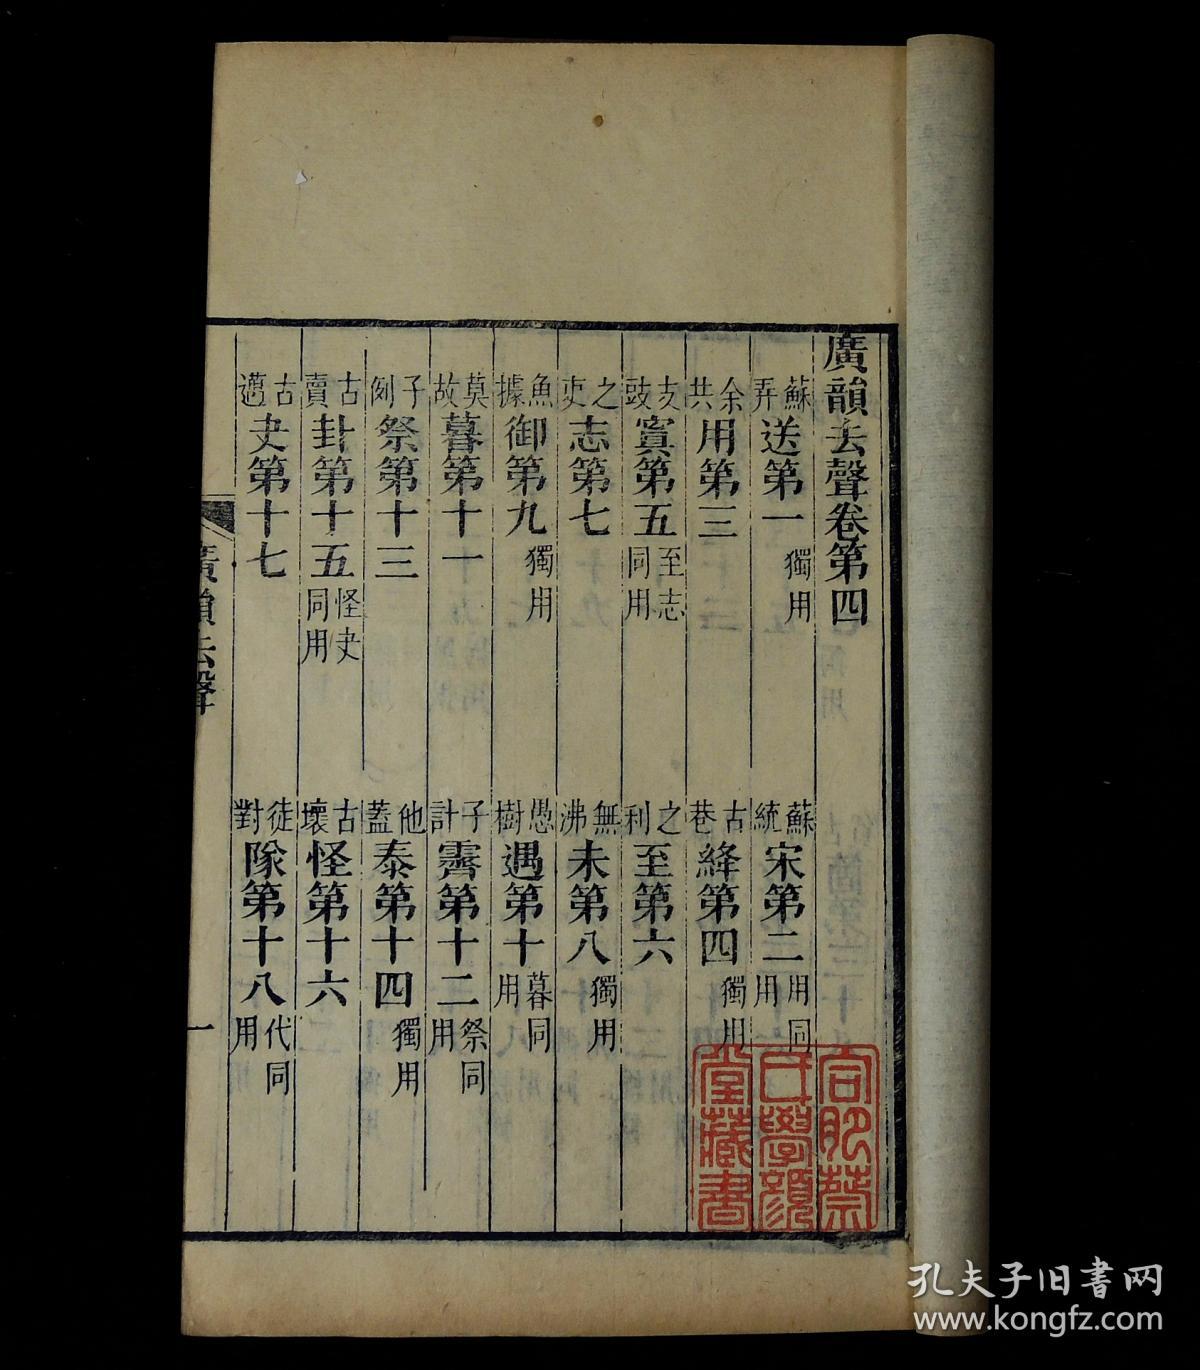 廣韻去聲卷第四
蘇弄送第一獨用 蘇統宋第二用同用
余共用第三 古巷絳第四獨用
支豉寘第五至志同用 之利至第六
之吏志第七 無沸未第八獨用
魚據御第九獨用 愚樹遇第十暮同用
莫故暮第十一 子計霽第十二祭同用
子例祭第十三 他蓋泰第十四獨用
古賣卦第十五怪夬同用 古壞怪第十六
古邁夬第十七 徒對隊第十八代同用
廣韻去聲 一
合肥蔡
學顏
堂藏書
孔夫子旧书网
www.kongfz.com